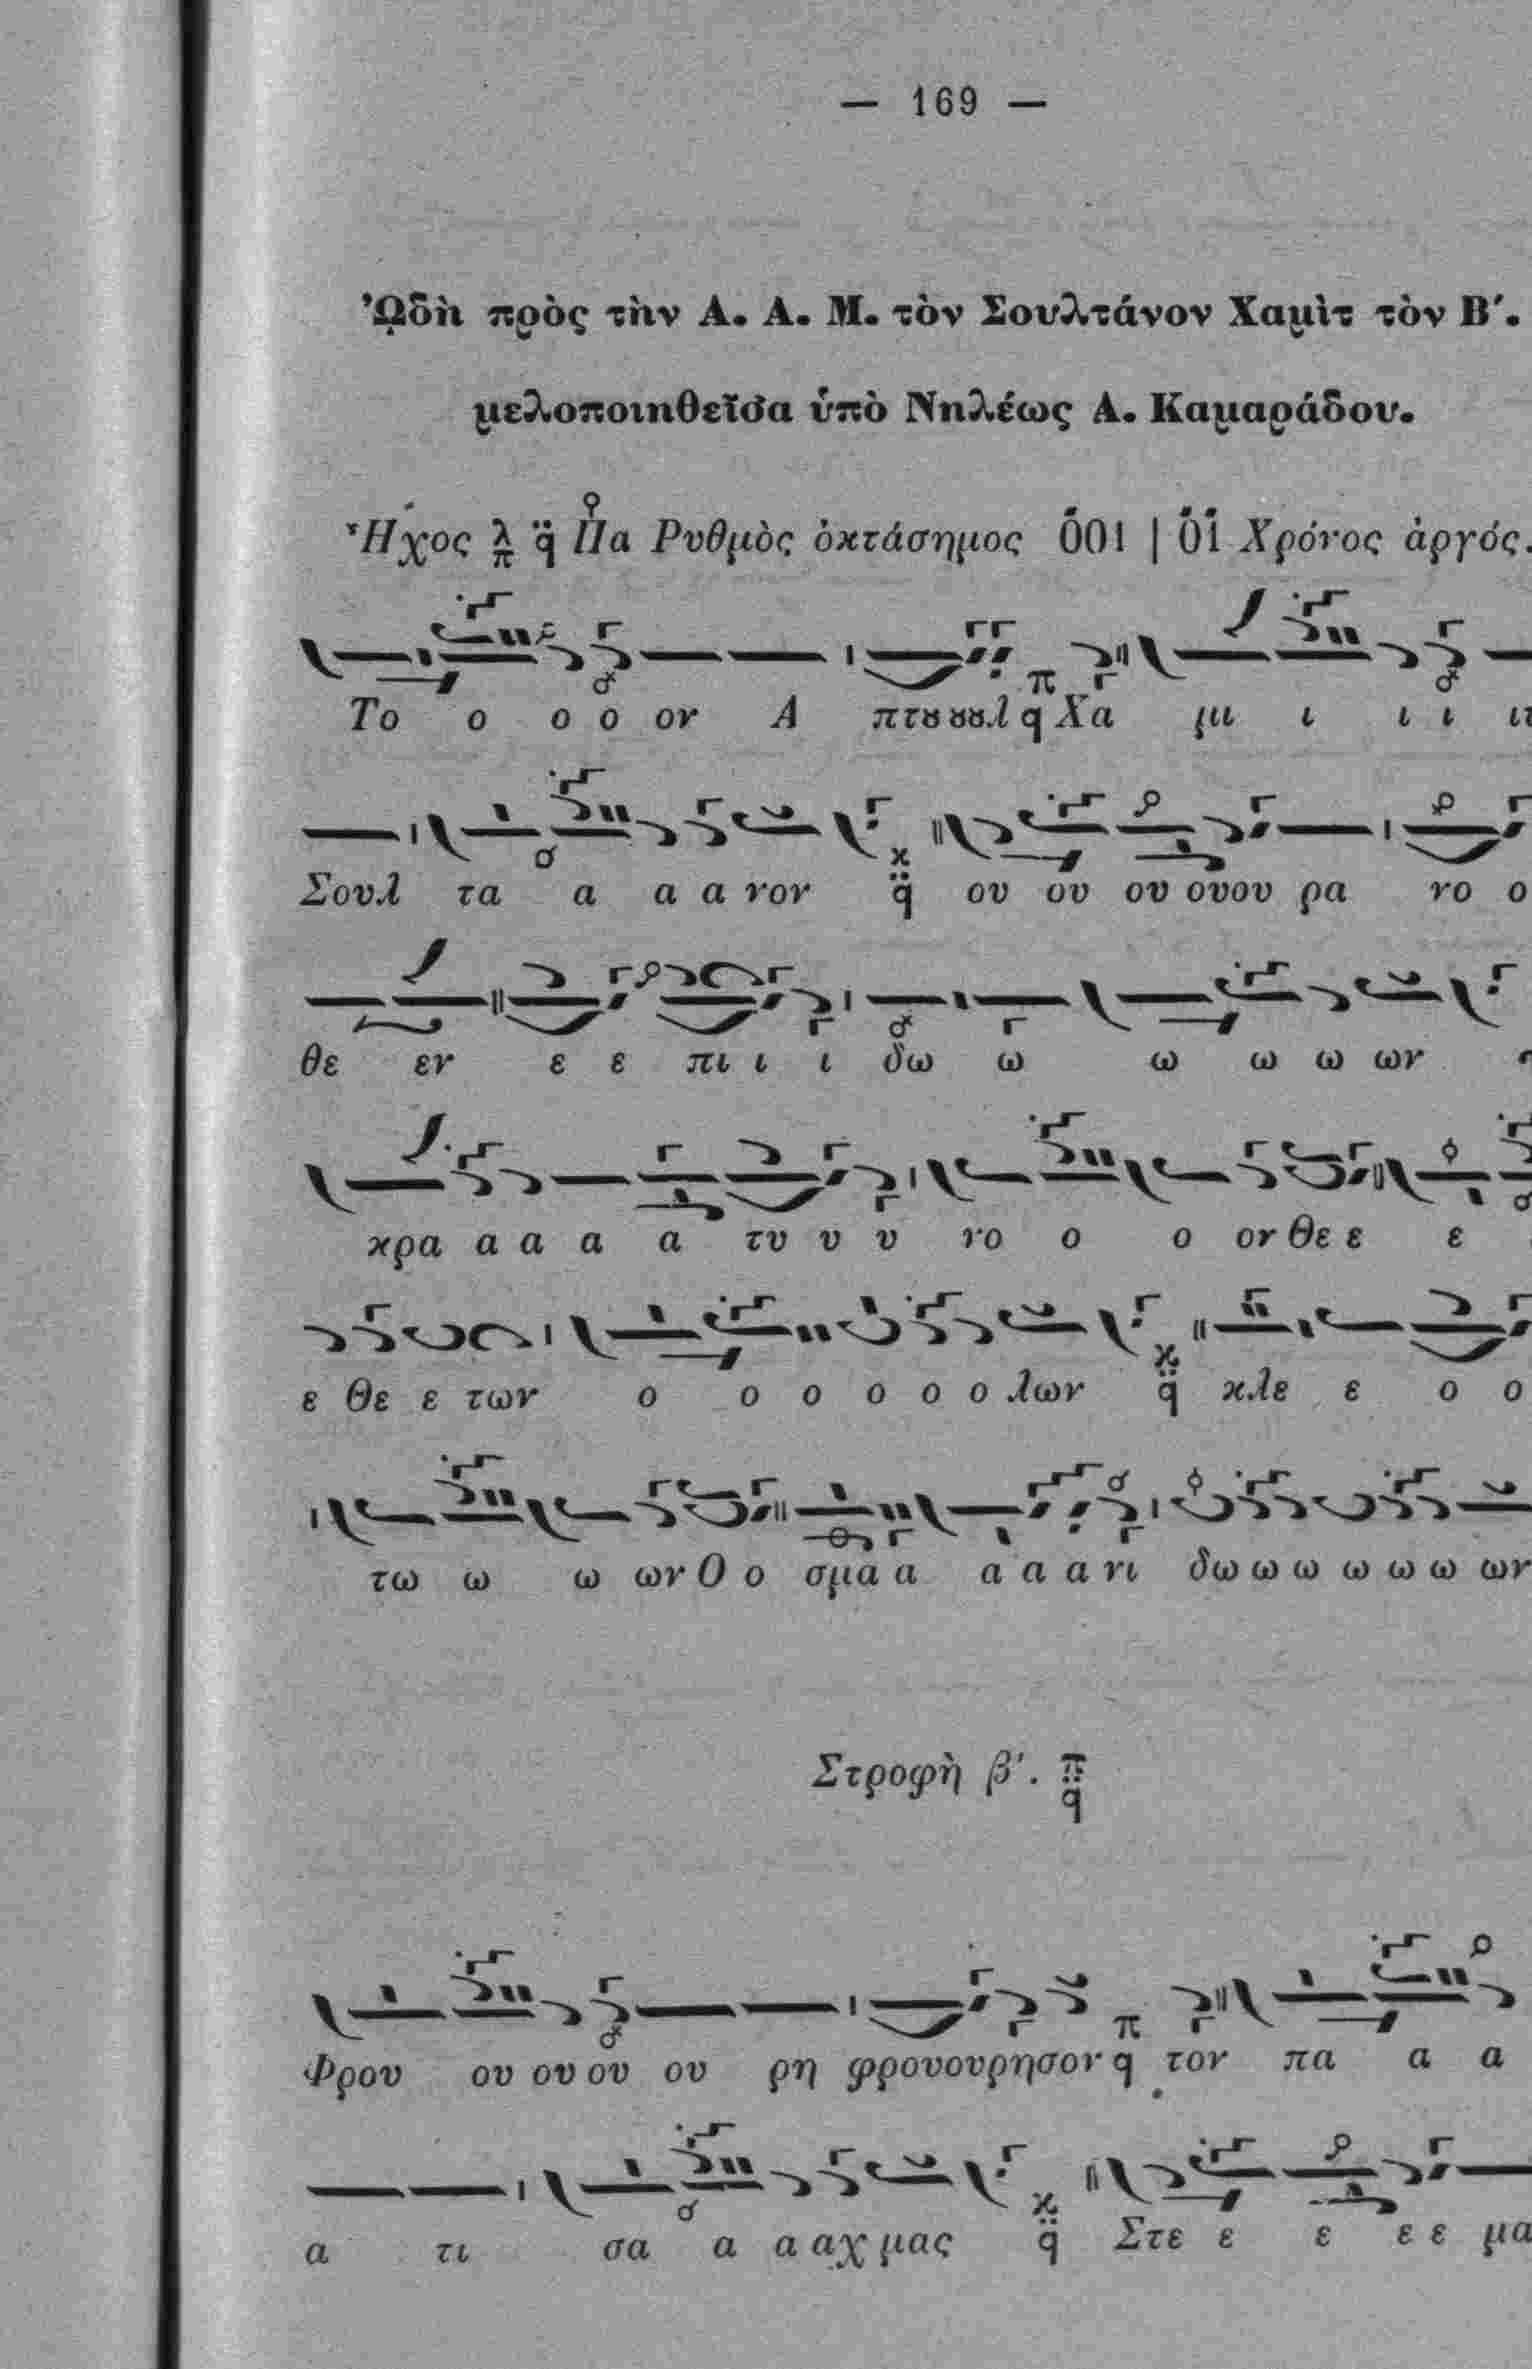 — 169 —
ᾨδὴ πρὸς τὴν Α. Α. Μ. τὸν Σουλτάνον Χαμὶτ τὸν Β΄.
μελοποιηθεῖσα ὑπὸ Νηλέως Α. Καμαράδου.
Ἦχος λ π q Πα Ρυθμὸς ὀκτάσημος 001 | 01 Χρόνος ἀργός.
Το ο ο ο ον Α πτȣ ȣȣλ q Χα μι ι ι ι ιτ
Σουλ τα α α α νον q ου ου ου ουου ρα νο ο
θε εν ε ε πι ι ι δω ω ω ω ω ων
κρα α α α α τυ υ υ νο ο ο ον Θε ε ε
ε Θε ε των ο ο ο ο ο ο λων q κλε ε ο ο
τω ω ω ων Ο ο σμα α α α α νι δω ω ω ω ω ω ων
Στροφὴ β΄. π q
Φρου ου ου ου ου ρη φρουουρησον q τον πα α α
α τι σα α α αχ μας q Στε ε ε ε ε μα